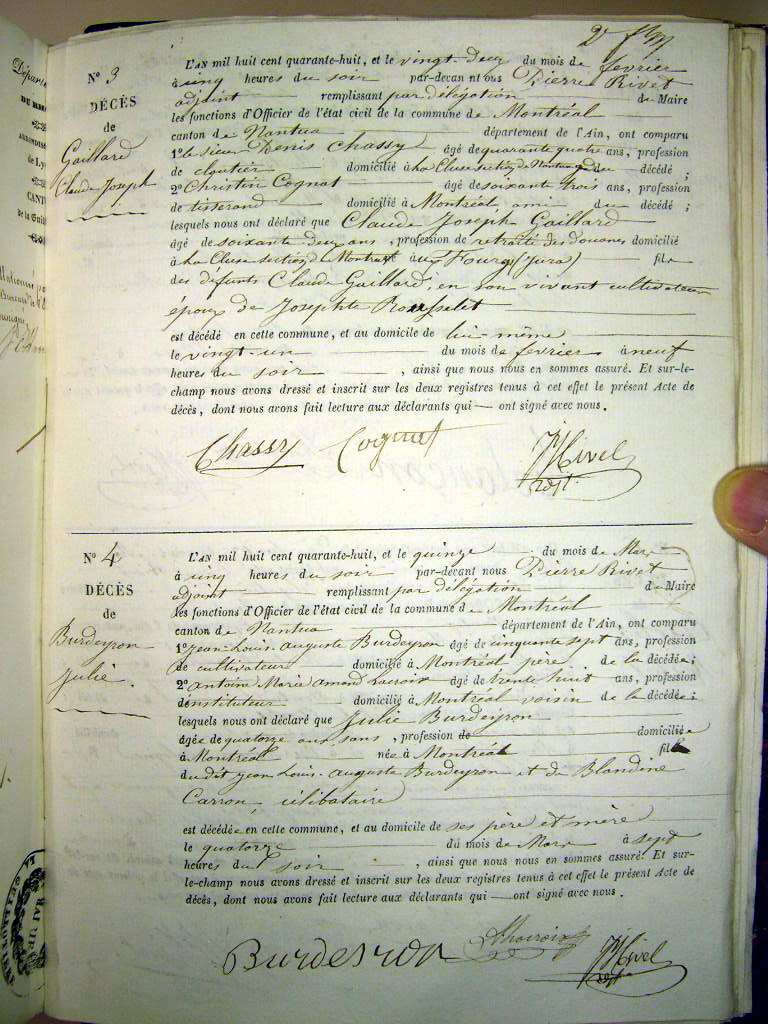 2e f
N° 3
DÉCÈS
de
Gaillard
Claude Joseph
L'AN mil huit cent quarante-huit, et le vingt-deux du mois de février
à cinq heures du soir par-devant nous Pierre Rivet
adjoint remplissant par délégation de Maire
les fonctions d'Officier de l'état civil de la commune de Montréal
canton de Nantua département de l'Ain, ont comparu
1° le sieur Denis Chassy âgé de quarante quatre ans, profession
de cloutier domicilié à La Cluse section de Montréal du décédé;
2° Christin Cognat âgé de soixante trois ans, profession
de tisserand domicilié à Montréal ami du décédé;
lesquels nous ont déclaré que Claude Joseph Gaillard
âgé de soixante deux ans, profession de retraité des douanes domicilié
à La Cluse section de Montréal né aux Fourgs (Jura) fils
des défunts Claude Gaillard, en son vivant cultivateur
époux de Josephte Rousselet
est décédé en cette commune, et au domicile de lui-même
le vingt-un du mois de février à neuf
heures du soir, ainsi que nous nous en sommes assuré. Et sur-le-
champ nous avons dressé et inscrit sur les deux registres tenus à cet effet le présent Acte de
décès, dont nous avons fait lecture aux déclarants qui — ont signé avec nous.
Chassy Cognat Rivet
adjt.
N° 4
DÉCÈS
de
Burdeyron
Julie
L'AN mil huit cent quarante-huit, et le quinze du mois de Mars
à cinq heures du soir par-devant nous Pierre Rivet
adjoint remplissant par délégation de Maire
les fonctions d'Officier de l'état civil de la commune de Montréal
canton de Nantua département de l'Ain, ont comparu
1° Jean Louis auguste Burdeyron âgé de cinquante sept ans, profession
de cultivateur domicilié à Montréal père de la décédée;
2° antoine Marie amand Lacroix âgé de trente huit ans, profession
d'instituteur domicilié à Montréal voisin de la décédée;
lesquels nous ont déclaré que Julie Burdeyron
âgée de quatorze ans sans, profession de domiciliée
à Montréal née à Montréal fille
du dit Jean Louis auguste Burdeyron et de Blandine
Carron, célibataire
est décédée en cette commune, et au domicile de ses père et mère
le quatorze du mois de Mars à sept
heures du soir, ainsi que nous nous en sommes assuré. Et sur-
le-champ nous avons dressé et inscrit sur les deux registres tenus à cet effet le présent Acte de
décès, dont nous avons fait lecture aux déclarants qui — ont signé avec nous.
Burdeyron Lacroix Rivet
adjt.